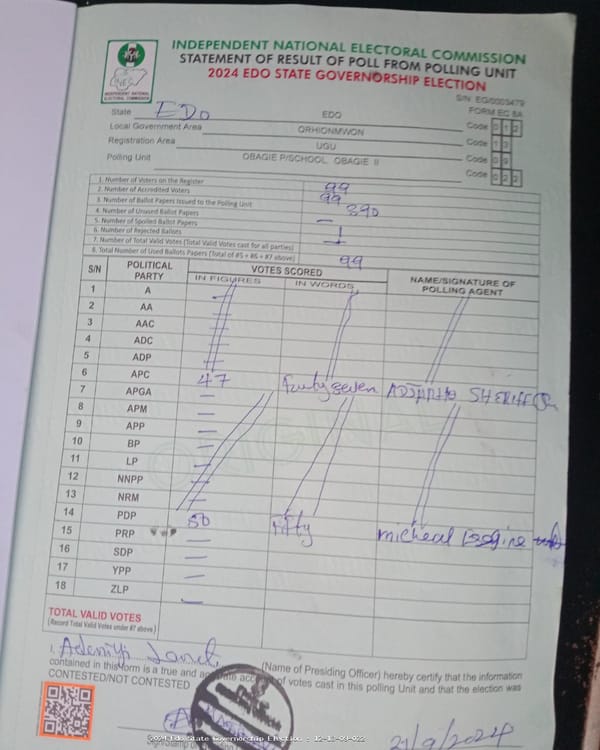 INDEPENDENT NATIONAL ELECTORAL COMMISSION
STATEMENT OF RESULT OF POLL FROM POLLING UNIT
2024 EDO STATE GOVERNORSHIP ELECTION
INDEPENDENT NATIONAL ELECTORAL COMMISSION
S/N: EG/0003479
FORM EC 8A
State EDO EDO Code 0 1 2
Local Government Area ORHIONMWON Code 1 3
Registration Area UGU Code 0 9
Polling Unit OBAGIE P/SCHOOL, OBAGIE II Code 0 2 2
1. Number of Voters on the Register
2. Number of Accredited Voters 99
3. Number of Ballot Papers Issued to the Polling Unit 99
4. Number of Unused Ballot Papers 390
5. Number of Spoiled Ballot Papers –
6. Number of Rejected Ballots
7. Number of Total Valid Votes (Total Valid Votes cast for all parties)
8. Total Number of Used Ballots Papers (Total of #5 + #6 + #7 above) 99
S/N POLITICAL PARTY VOTES SCORED NAME/SIGNATURE OF POLLING AGENT
IN FIGURES IN WORDS
1 A
2 AA
3 AAC
4 ADC
5 ADP
6 APC 47 Fourty seven SHERIFF
7 APGA –
8 APM –
9 APP –
10 BP –
11 LP –
12 NNPP –
13 NRM –
14 PDP 50 Fifty micheal
15 PRP –
16 SDP –
17 YPP –
18 ZLP –
TOTAL VALID VOTES
(Record Total Valid Votes under #7 above)
I, Adeniyi Janet (Name of Presiding Officer) hereby certify that the information
contained in this form is a true and accurate account of votes cast in this polling Unit and that the election was
CONTESTED/NOT CONTESTED
2024 Edo State Governorship Election - 12-13-09-022
21/9/2024